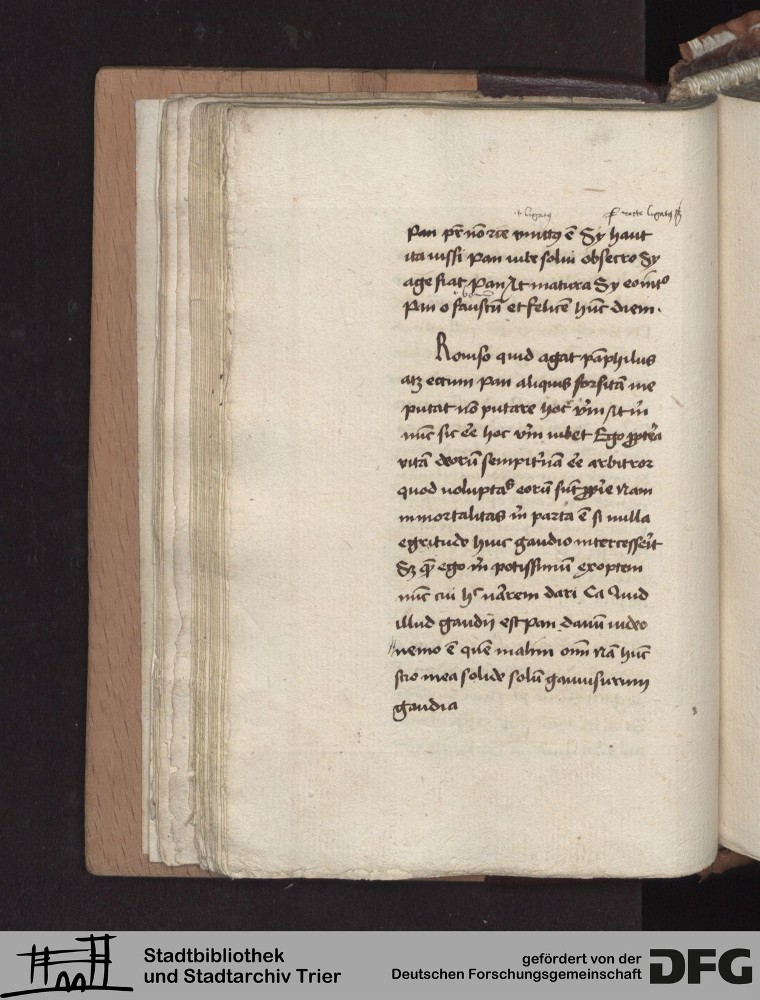 Pan pr̄ nō rcē vinctꝰ ē Sy haut
ita iussi Pan iube solui obsecro Sy
age fiat Pan At matura Sy eo int°
Pan o faustū et felicē hūc diem.
Reuiso quid agat pāphilus
atqꝫ eccum Pan aliquis forsitā me
putat nō putare hoc v̄m At m̄
nūc sic eē hoc v̄m iubet Ego ꝓpterea
vitā deorū sempit'nā eē arbitror
quod voluptates eorū sūt ꝓprie Nam
immortalitas m̄ parta ē si nulla
egritudo huic gaudio intercesserit
Sꝫ quē ego m̄ potissimū exoptem
nūc cui hec narrem dari Ca Quid
illud gaudij est Pan dauū video
nemo ē quē malim om̄ Nā hūc
scio mea solide solū gauisurum
gaudia
Stadtbibliothek
und Stadtarchiv Trier
gefördert von der
Deutschen Forschungsgemeinschaft
DFG